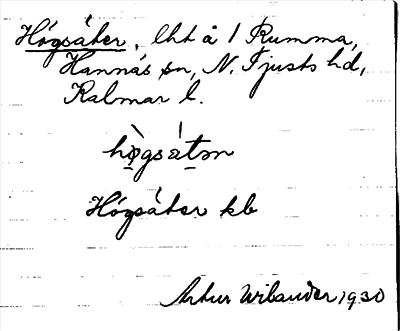 Högsåter, lht å 1 Rumma,
Hannäs sn, N. Tjusts hd,
Kalmar l.
hø̀gsátər
Högsåter kb
Artur Wilander 1930